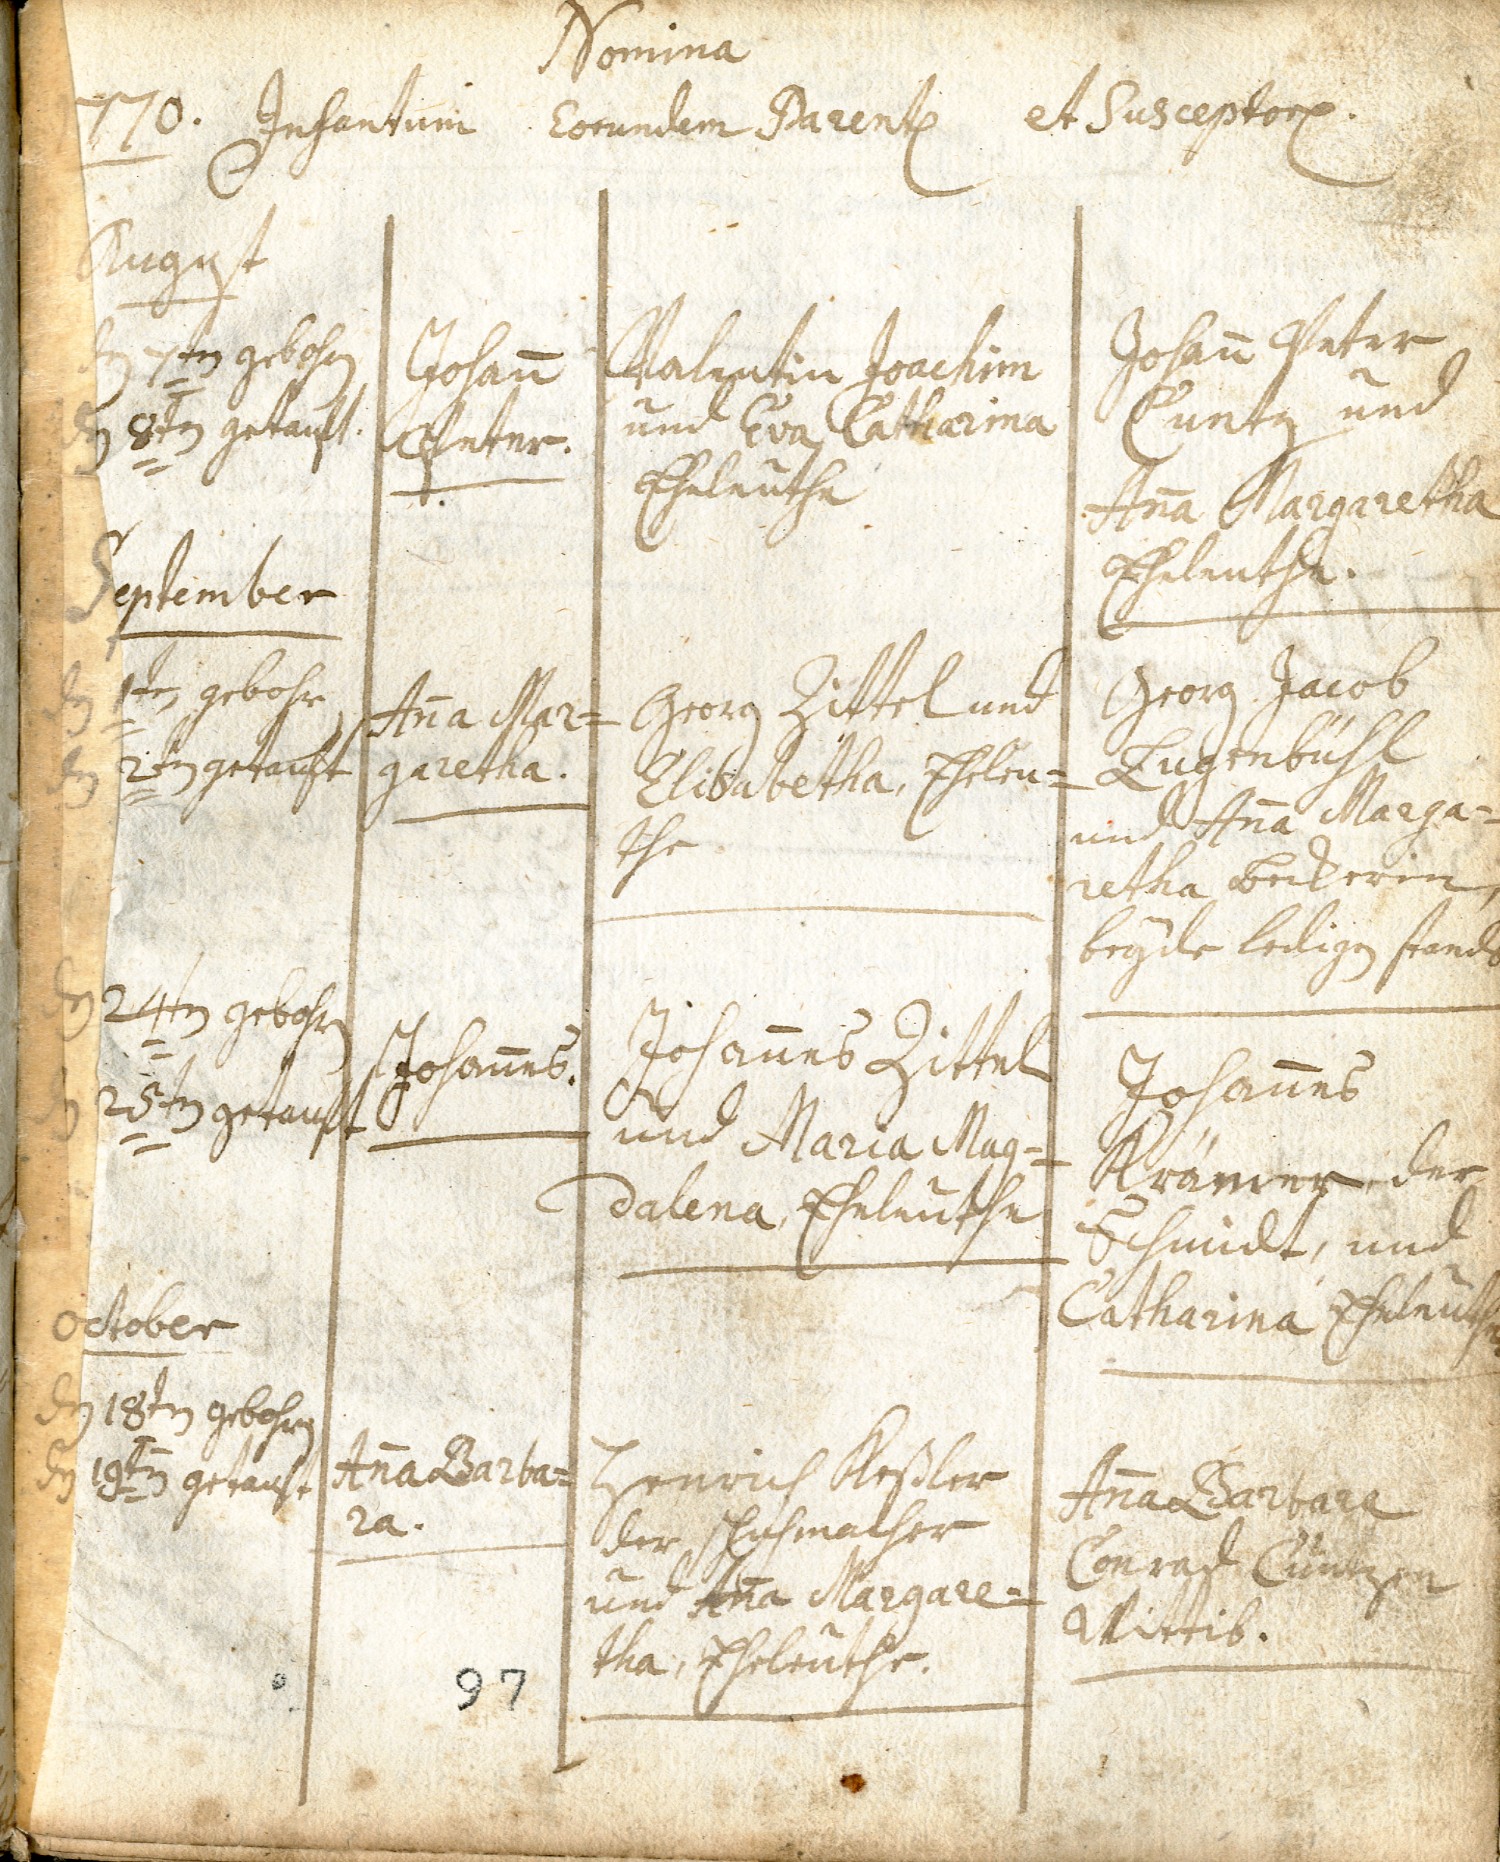 Nomina
1770. Infantum Eorundem Parent et Susceptor.
August
dn 7tn gebohrn
dn 8tn getauft.
Johan̄
Peter.
Valentin Joachim
und Eva Catharina
Eheleuthe
Johan̄ Peter
Cuntz und
An̄a Margaretha
Eheleuthe.
September
dn 1tn gebohrn
dn 2tn getauft
An̄a Mar=
garetha.
Georg Zittel und
Elisabetha, Eheleu=
the
Georg Jacob
Lugenbühl
und An̄a Marga=
retha Beckerin,
beÿde ledigen stands
dn 24tn gebohrn
dn 25tn getauft
Johan̄es.
Johan̄es Zittel
und Maria Mag=
dalena, Eheleuthe
Johan̄es
Krämer der
Schmidt, und
Catharina Eheleuthe
October
dn 18tn gebohrn
dn 19tn getauft
An̄a Barba=
ra.
Henrich Keßler
der schuhmacher
und An̄a Margare=
tha, Eheleuthe.
An̄a Barbara
Conrad Cuntzen
Wittib.
97